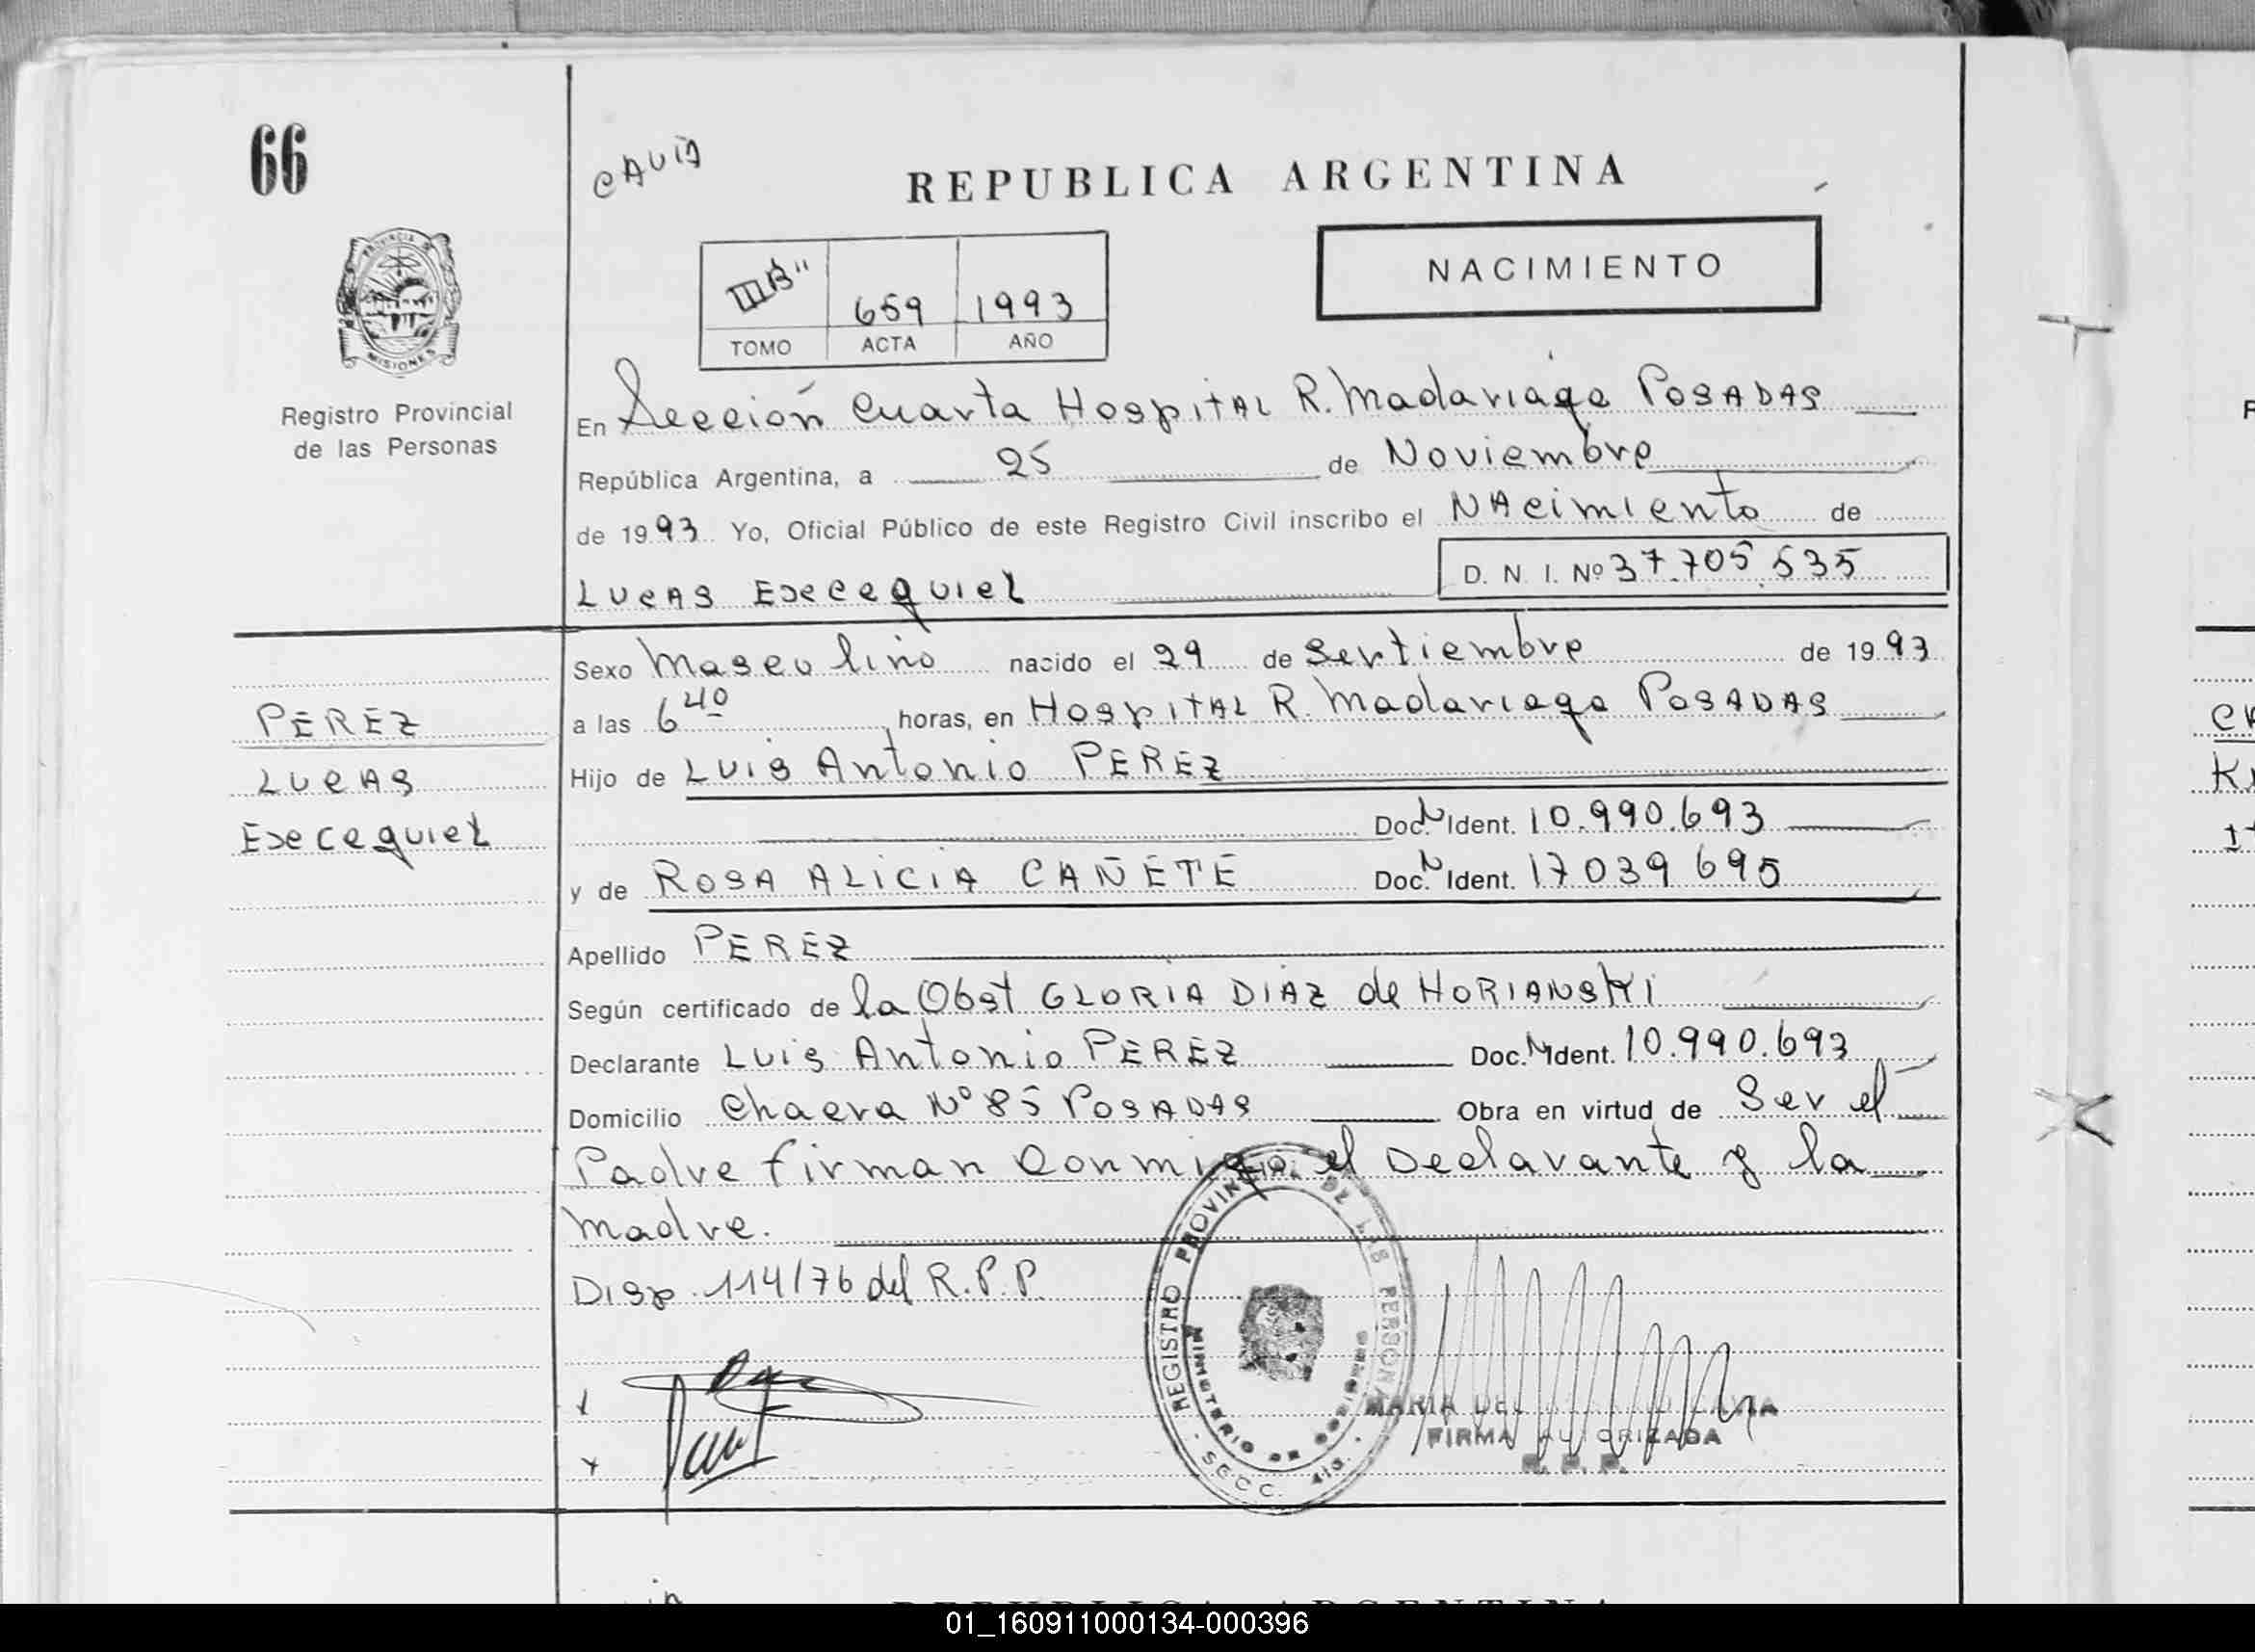 66
CAVIA
REPUBLICA ARGENTINA
NACIMIENTO
III"B" 659 1993
TOMO ACTA AÑO
PROVINCIA DE MISIONES
Registro Provincial
de las Personas
En Sección Cuarta Hospital R. Madariaga Posadas
República Argentina, a 25 de Noviembre
de 1993 Yo, Oficial Público de este Registro Civil inscribo el Nacimiento de
D. N. I. Nº 37.705.535
Lucas Esecequiel
Sexo Masculino nacido el 29 de Septiembre de 1993
a las 6 40 horas, en Hospital R. Madariaga Posadas
PEREZ
Lucas
Esecequiel
Hijo de Luis Antonio PEREZ
Doc. N Ident. 10.990.693
y de ROSA ALICIA CAÑETE Doc. N Ident. 17039695
Apellido PEREZ
Según certificado de la Obst GLORIA DIAZ de HORIANSKI
Declarante Luis Antonio PEREZ Doc. N Ident. 10.990.693
Domicilio Nº 85 Posadas Obra en virtud de Ser el
Padre firman Conmigo el Declarante y la
Madre.
Disp. 114/76 del R.P.P.
REGISTRO PROVINCIAL DE LAS PERSONAS
MINISTERIO DE GOBIERNO
SECC. 4ta.
MARIA DEL CAVIA
FIRMA AUTORIZADA
R. P. P.
REPUBLICA ARGENTINA
01_160911000134-000396